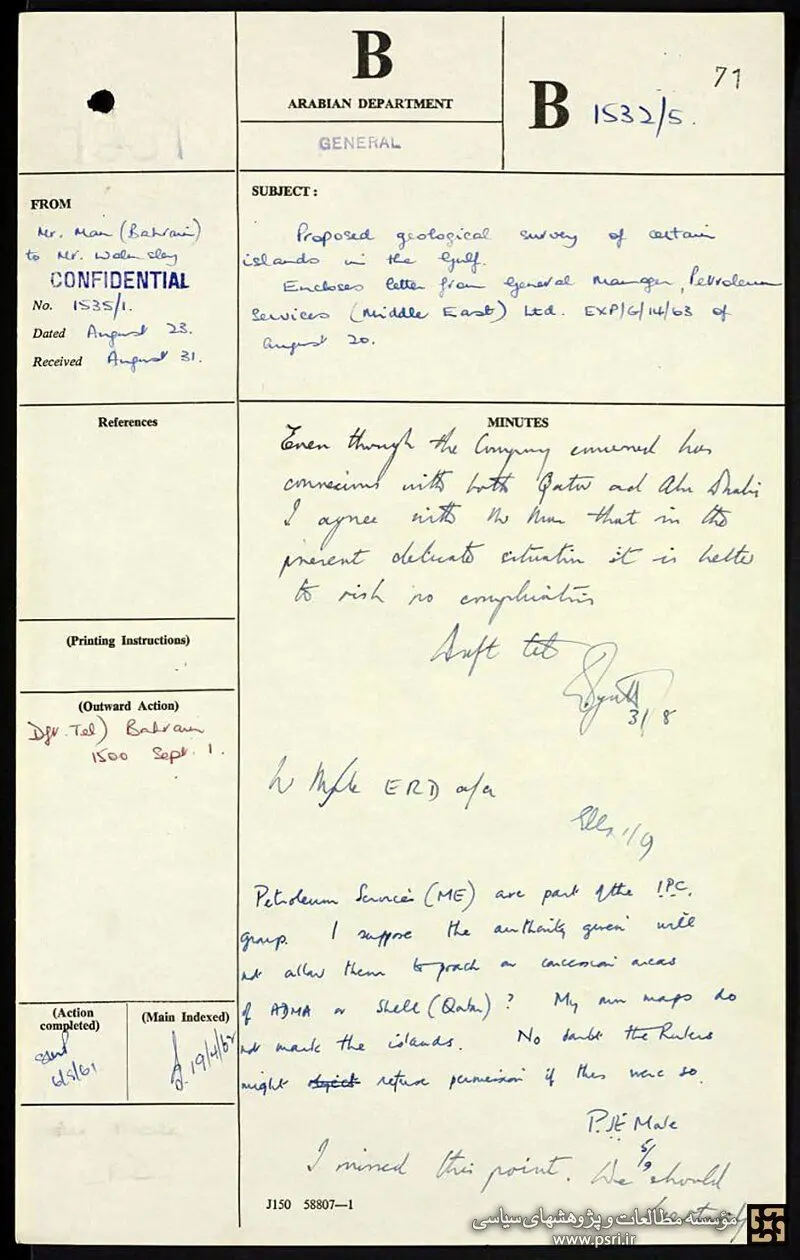 71
B
ARABIAN DEPARTMENT
GENERAL
B 1532/5.
FROM
Mr. Man (Bahrain)
to Mr. Walmsley
CONFIDENTIAL
No. 1535/1.
Dated August 23.
Received August 31.
SUBJECT :
Proposed geological survey of certain
islands in the Gulf.
Encloses letter from General Manager, Petroleum
Services (Middle East) Ltd. EXP/G/14/63 of
August 20.
References
(Printing Instructions)
(Outward Action)
Dft. Tel) Bahrain
1500 Sept. 1.
(Action
completed)
6/9/61
(Main Indexed)
19/4/62
MINUTES
Even though the Company concerned has
connexions with both Qatar and Abu Dhabi
I agree with Mr Man that in the
present delicate situation it is better
to risk no complications
Draft tel
31/8
Mr Male ERD o/r
1/9
Petroleum Services (ME) are part of the IPC.
group. I suppose the authority given will
not allow them to poach on concession areas
of ADMA or Shell (Qatar)? My own maps do
not mark the islands. No doubt the Rulers
might object refuse permission if this were so.
P.J.E. Male
5/9
I missed this point. We should
J150 58807—1
مؤسسه مطالعات و پژوهشهای سیاسی
www.psri.ir